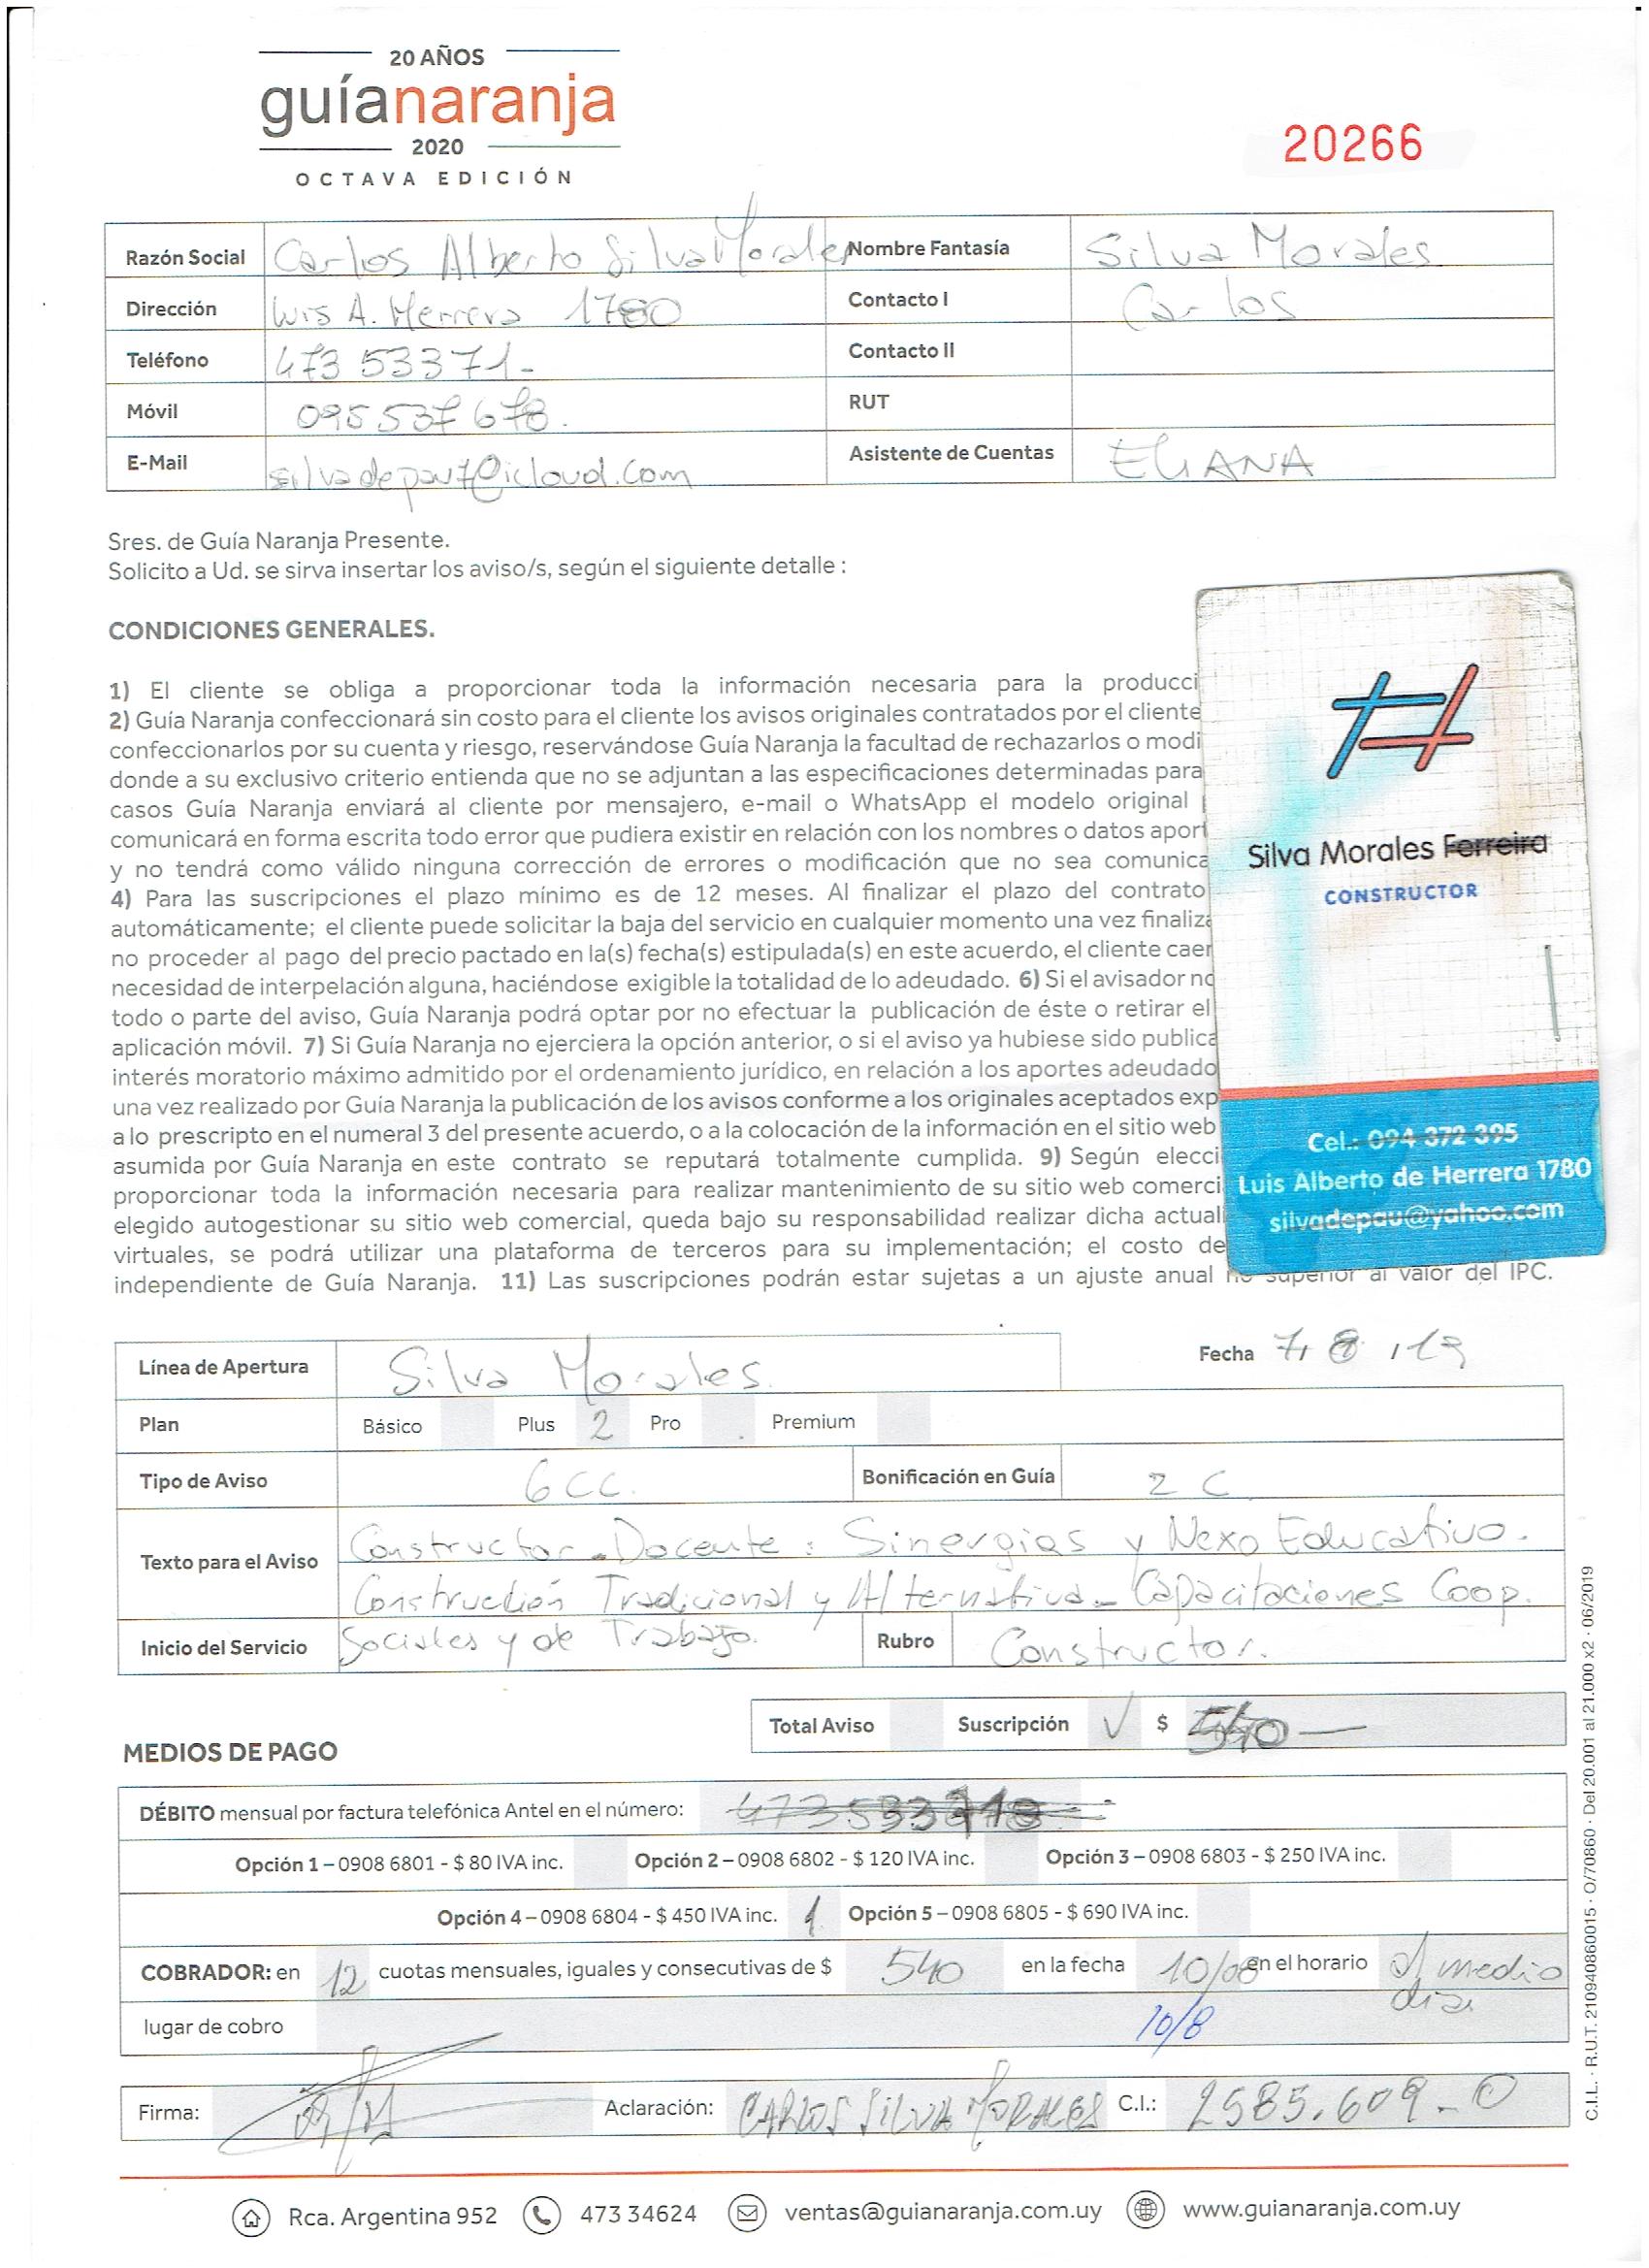 20 AÑOS
guíanaranja
2020
OCTAVA EDICIÓN
20266
Razón Social Carlos Alberto Silva Morales Nombre Fantasía Silva Morales
Dirección Luis A. Herrera 1780 Contacto I Carlos
Teléfono 473 53371- Contacto II
Móvil 095 537 678. RUT
E-Mail silvadepau7@icloud.com Asistente de Cuentas ELIANA
Sres. de Guía Naranja Presente.
Solicito a Ud. se sirva insertar los aviso/s, según el siguiente detalle :
CONDICIONES GENERALES.
1) El cliente se obliga a proporcionar toda la información necesaria para la producci
2) Guía Naranja confeccionará sin costo para el cliente los avisos originales contratados por el cliente
confeccionarlos por su cuenta y riesgo, reservándose Guía Naranja la facultad de rechazarlos o modi
donde a su exclusivo criterio entienda que no se adjuntan a las especificaciones determinadas para
casos Guía Naranja enviará al cliente por mensajero, e-mail o WhatsApp el modelo original
comunicará en forma escrita todo error que pudiera existir en relación con los nombres o datos apor
y no tendrá como válido ninguna corrección de errores o modificación que no sea comunica
4) Para las suscripciones el plazo mínimo es de 12 meses. Al finalizar el plazo del contrato
automáticamente; el cliente puede solicitar la baja del servicio en cualquier momento una vez finaliza
no proceder al pago del precio pactado en la(s) fecha(s) estipulada(s) en este acuerdo, el cliente caer
necesidad de interpelación alguna, haciéndose exigible la totalidad de lo adeudado. 6) Si el avisador no
todo o parte del aviso, Guía Naranja podrá optar por no efectuar la publicación de éste o retirar el
aplicación móvil. 7) Si Guía Naranja no ejerciera la opción anterior, o si el aviso ya hubiese sido publica
interés moratorio máximo admitido por el ordenamiento jurídico, en relación a los aportes adeudado
una vez realizado por Guía Naranja la publicación de los avisos conforme a los originales aceptados exp
a lo prescripto en el numeral 3 del presente acuerdo, o a la colocación de la información en el sitio web
asumida por Guía Naranja en este contrato se reputará totalmente cumplida. 9) Según elecci
proporcionar toda la información necesaria para realizar mantenimiento de su sitio web comerci
elegido autogestionar su sitio web comercial, queda bajo su responsabilidad realizar dicha actuali
virtuales, se podrá utilizar una plataforma de terceros para su implementación; el costo de
independiente de Guía Naranja. 11) Las suscripciones podrán estar sujetas a un ajuste anual no superior al valor del IPC.
Silva Morales Ferreira
CONSTRUCTOR
Cel.: 094 372 395
Luis Alberto de Herrera 1780
silvadepau@yahoo.com
Línea de Apertura Silva Morales. Fecha 7, 8, 19
Plan Básico Plus 2 Pro Premium
Tipo de Aviso 6CC. Bonificación en Guía 2 C
Texto para el Aviso Constructor - Docente : Sinergias y Nexo Educativo.
Construcción Tradicional y Alternativa - Capacitaciones Coop.
Inicio del Servicio Sociales y de Trabajo. Rubro Constructor.
Total Aviso Suscripción ✓ $ 540 —
MEDIOS DE PAGO
DÉBITO mensual por factura telefónica Antel en el número:
Opción 1 – 0908 6801 - $ 80 IVA inc. Opción 2 – 0908 6802 - $ 120 IVA inc. Opción 3 – 0908 6803 - $ 250 IVA inc.
Opción 4 – 0908 6804 - $ 450 IVA inc. 1 Opción 5 – 0908 6805 - $ 690 IVA inc.
COBRADOR: en 12 cuotas mensuales, iguales y consecutivas de $ 540 en la fecha 10/08 en el horario al medio
dia
lugar de cobro 10/8
Firma: Aclaración: CARLOS SILVA MORALES C.I.: 2585.609-0
Rca. Argentina 952 473 34624 ventas@guianaranja.com.uy www.guianaranja.com.uy
C.I.L. · R.U.T. 210940860015 · O/70860 · Del 20.001 al 21.000 x2 · 06/2019